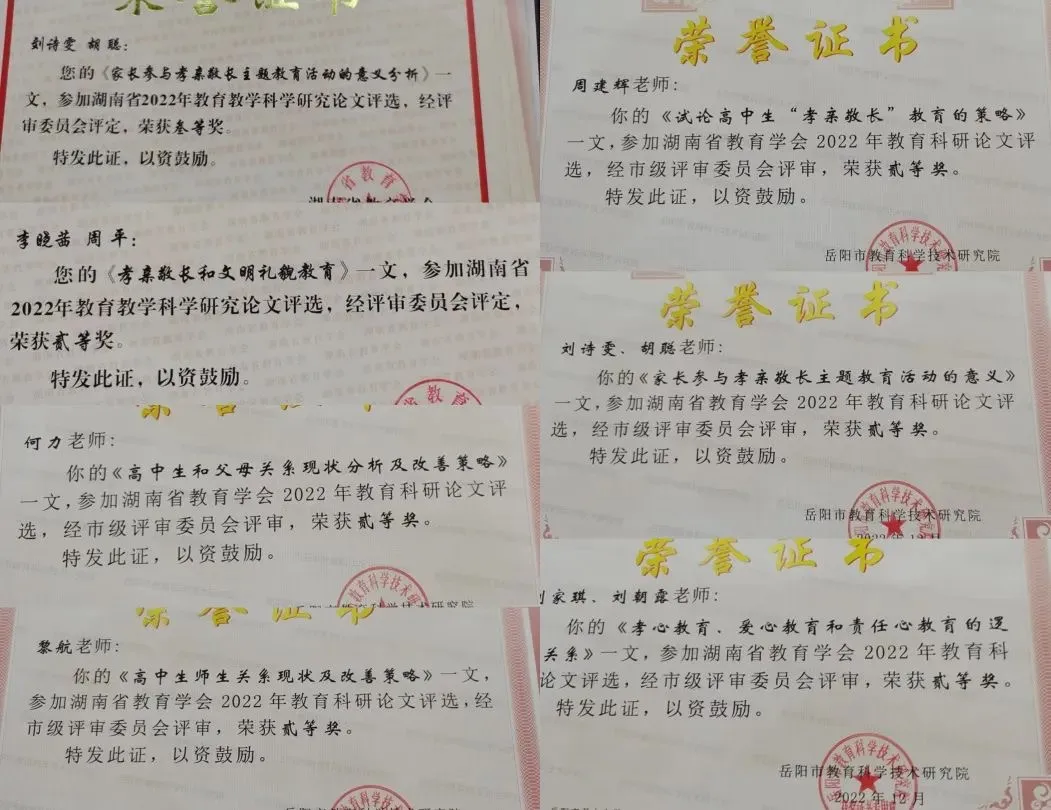 荣誉证书
刘诗雯 胡聪：
您的《家长参与孝亲敬长主题教育活动的意义分析》一
文，参加湖南省2022年教育教学科学研究论文评选，经评
审委员会评定，荣获叁等奖。
特发此证，以资鼓励。
省教育
李晓茜 周平：
您的《孝亲敬长和文明礼貌教育》一文，参加湖南省
2022年教育教学科学研究论文评选，经评审委员会评定，
荣获贰等奖。
特发此证，以资鼓励。
教育
何力老师：
你的《高中生和父母关系现状分析及改善策略》
一文，参加湖南省教育学会 2022 年教育科研论文评
选，经市级评审委员会评审，荣获贰等奖。
特发此证，以资鼓励。
教育科学技术研
黎航老师：
你的《高中生师生关系现状及改善策略》一文，
参加湖南省教育学会 2022 年教育科研论文评选，经
市级评审委员会评审，荣获贰等奖。
特发此证，以资鼓励。
荣誉证书
周建辉老师：
你的《试论高中生“孝亲敬长”教育的策略》
一文，参加湖南省教育学会 2022 年教育科研论文评
选，经市级评审委员会评审，荣获贰等奖。
特发此证，以资鼓励。
岳阳市教育科学技术研究院
荣誉证书
刘诗雯、胡聪老师：
你的《家长参与孝亲敬长主题教育活动的意义》
一文，参加湖南省教育学会 2022 年教育科研论文评
选，经市级评审委员会评审，荣获贰等奖。
特发此证，以资鼓励。
岳阳市教育科学技术研究院
2022 年 12 月
荣誉证书
刘家琪、刘朝露老师：
你的《孝心教育、爱心教育和责任心教育的逻
关系》一文，参加湖南省教育学会 2022 年教育科
论文评选，经市级评审委员会评审，荣获贰等奖。
特发此证，以资鼓励。
岳阳市教育科学技术研究院
2022 年 12 月